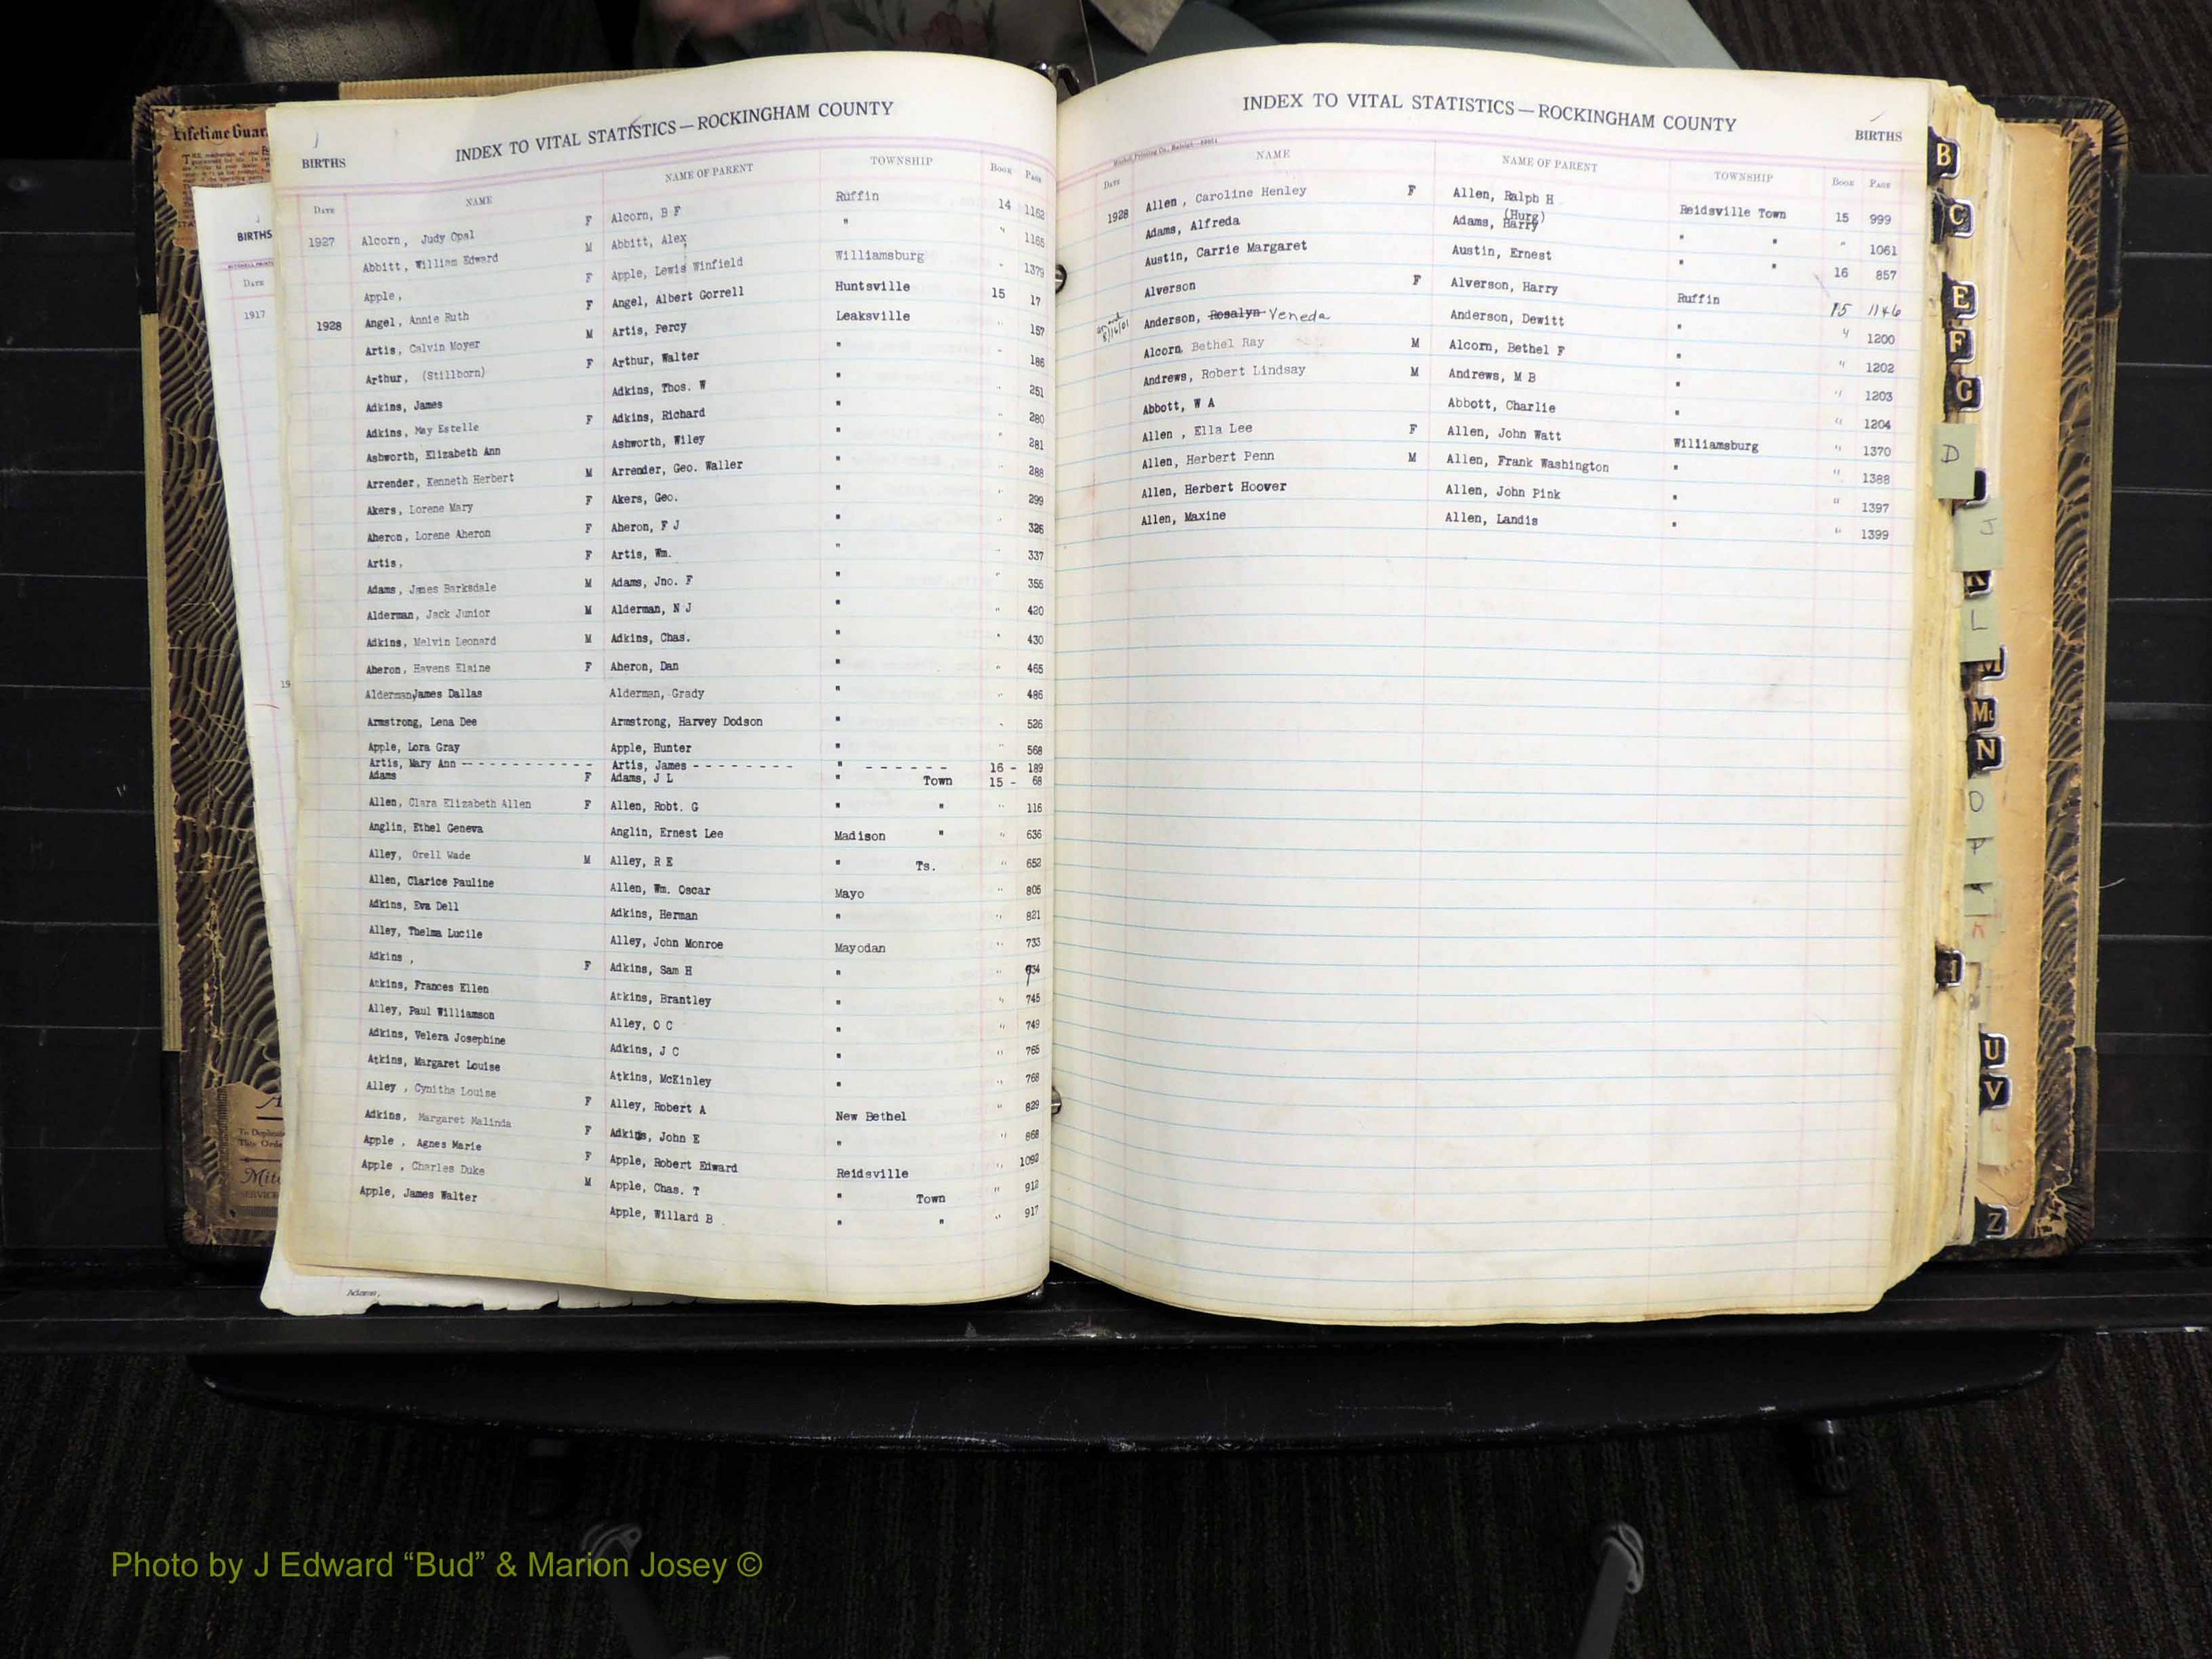 INDEX TO VITAL STATISTICS — ROCKINGHAM COUNTY
BIRTHS
DATE NAME NAME OF PARENT TOWNSHIP BOOK PAGE
1927 Alcorn, Judy Opal F Alcorn, B F Ruffin 14 1162
Abbitt, William Edward M Abbitt, Alex " " 1165
Apple, F Apple, Lewis Winfield Williamsburg " 1379
1928 Angel, Annie Ruth F Angel, Albert Gorrell Huntsville 15 17
Artis, Calvin Moyer M Artis, Percy Leaksville " 157
Arthur, (Stillborn) F Arthur, Walter " " 186
Adkins, James Adkins, Thos. W " " 251
Adkins, May Estelle F Adkins, Richard " " 280
Ashworth, Elizabeth Ann Ashworth, Wiley " " 281
Arrender, Kenneth Herbert M Arrender, Geo. Waller " " 288
Akers, Lorene Mary F Akers, Geo. " " 299
Aheron, Lorene Aheron F Aheron, F J " " 326
Artis, F Artis, Wm. " " 337
Adams, James Barksdale M Adams, Jno. F " " 355
Alderman, Jack Junior M Alderman, N J " " 420
Adkins, Melvin Leonard M Adkins, Chas. " " 430
Aheron, Havens Elaine F Aheron, Dan " " 465
Alderman,James Dallas Alderman, Grady " " 486
Armstrong, Lena Dee Armstrong, Harvey Dodson " " 526
Apple, Lora Gray Apple, Hunter " " 568
Artis, Mary Ann - - - - - - - - - - - - Artis, James - - - - - - - - " - - - - - - 16 - 189
Adams F Adams, J L " Town 15 - 68
Allen, Clara Elizabeth Allen F Allen, Robt. G " " " 116
Anglin, Ethel Geneva Anglin, Ernest Lee Madison " " 636
Alley, Orell Wade M Alley, R E " Ts. " 652
Allen, Clarice Pauline Allen, Wm. Oscar Mayo " 805
Adkins, Eva Dell Adkins, Herman " " 821
Alley, Thelma Lucile Alley, John Monroe Mayodan " 733
Adkins, F Adkins, Sam H " " 734
Atkins, Frances Ellen Atkins, Brantley " " 745
Alley, Paul Williamson Alley, O C " " 749
Adkins, Velera Josephine Adkins, J C " " 765
Atkins, Margaret Louise Atkins, McKinley " " 768
Alley, Cynitha Louise F Alley, Robert A New Bethel " 829
Adkins, Margaret Malinda F Adkins, John E " " 868
Apple, Agnes Marie F Apple, Robert Edward Reidsville " 1092
Apple, Charles Duke M Apple, Chas. T " Town " 912
Apple, James Walter Apple, Willard B " " " 917
INDEX TO VITAL STATISTICS — ROCKINGHAM COUNTY
BIRTHS
DATE NAME NAME OF PARENT TOWNSHIP BOOK PAGE
1928 Allen, Caroline Henley F Allen, Ralph H Reidsville Town 15 999
Adams, Alfreda Adams, Harry (Hurg) " " " 1061
Austin, Carrie Margaret Austin, Ernest " " 16 857
Alverson F Alverson, Harry Ruffin 15 1146
8/16/01 Anderson, Rosalyn Veneda Anderson, Dewitt " " 1200
Alcorn, Bethel Ray M Alcorn, Bethel F " " 1202
Andrews, Robert Lindsay M Andrews, M B " " 1203
Abbott, W A Abbott, Charlie " " 1204
Allen, Ella Lee F Allen, John Watt Williamsburg " 1370
Allen, Herbert Penn M Allen, Frank Washington " " 1388
Allen, Herbert Hoover Allen, John Pink " " 1397
Allen, Maxine Allen, Landis " " 1399
Lifetime Guar
BIRTHS
DATE
1917
19
Adams,
B
C
E
F
G
D
J
K
L
M
Mc
N
O
P
U
V
Z
Photo by J Edward “Bud” & Marion Josey ©